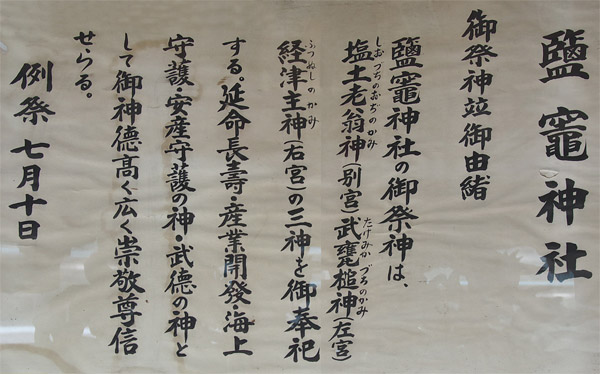 鹽竈神社
御祭神竝御由緒
鹽竈神社の御祭神は、
しおづちのおぢのかみ
塩土老翁神(別宮)武甕槌神(左宮)
たけみかづちのかみ
ふつぬしのかみ
経津主神(右宮)の三神を御奉祀
する。延命長壽・産業開發・海上
守護・安産守護の神・武徳の神と
して御神徳高く広く崇敬尊信
せらる。
例祭 七月十日